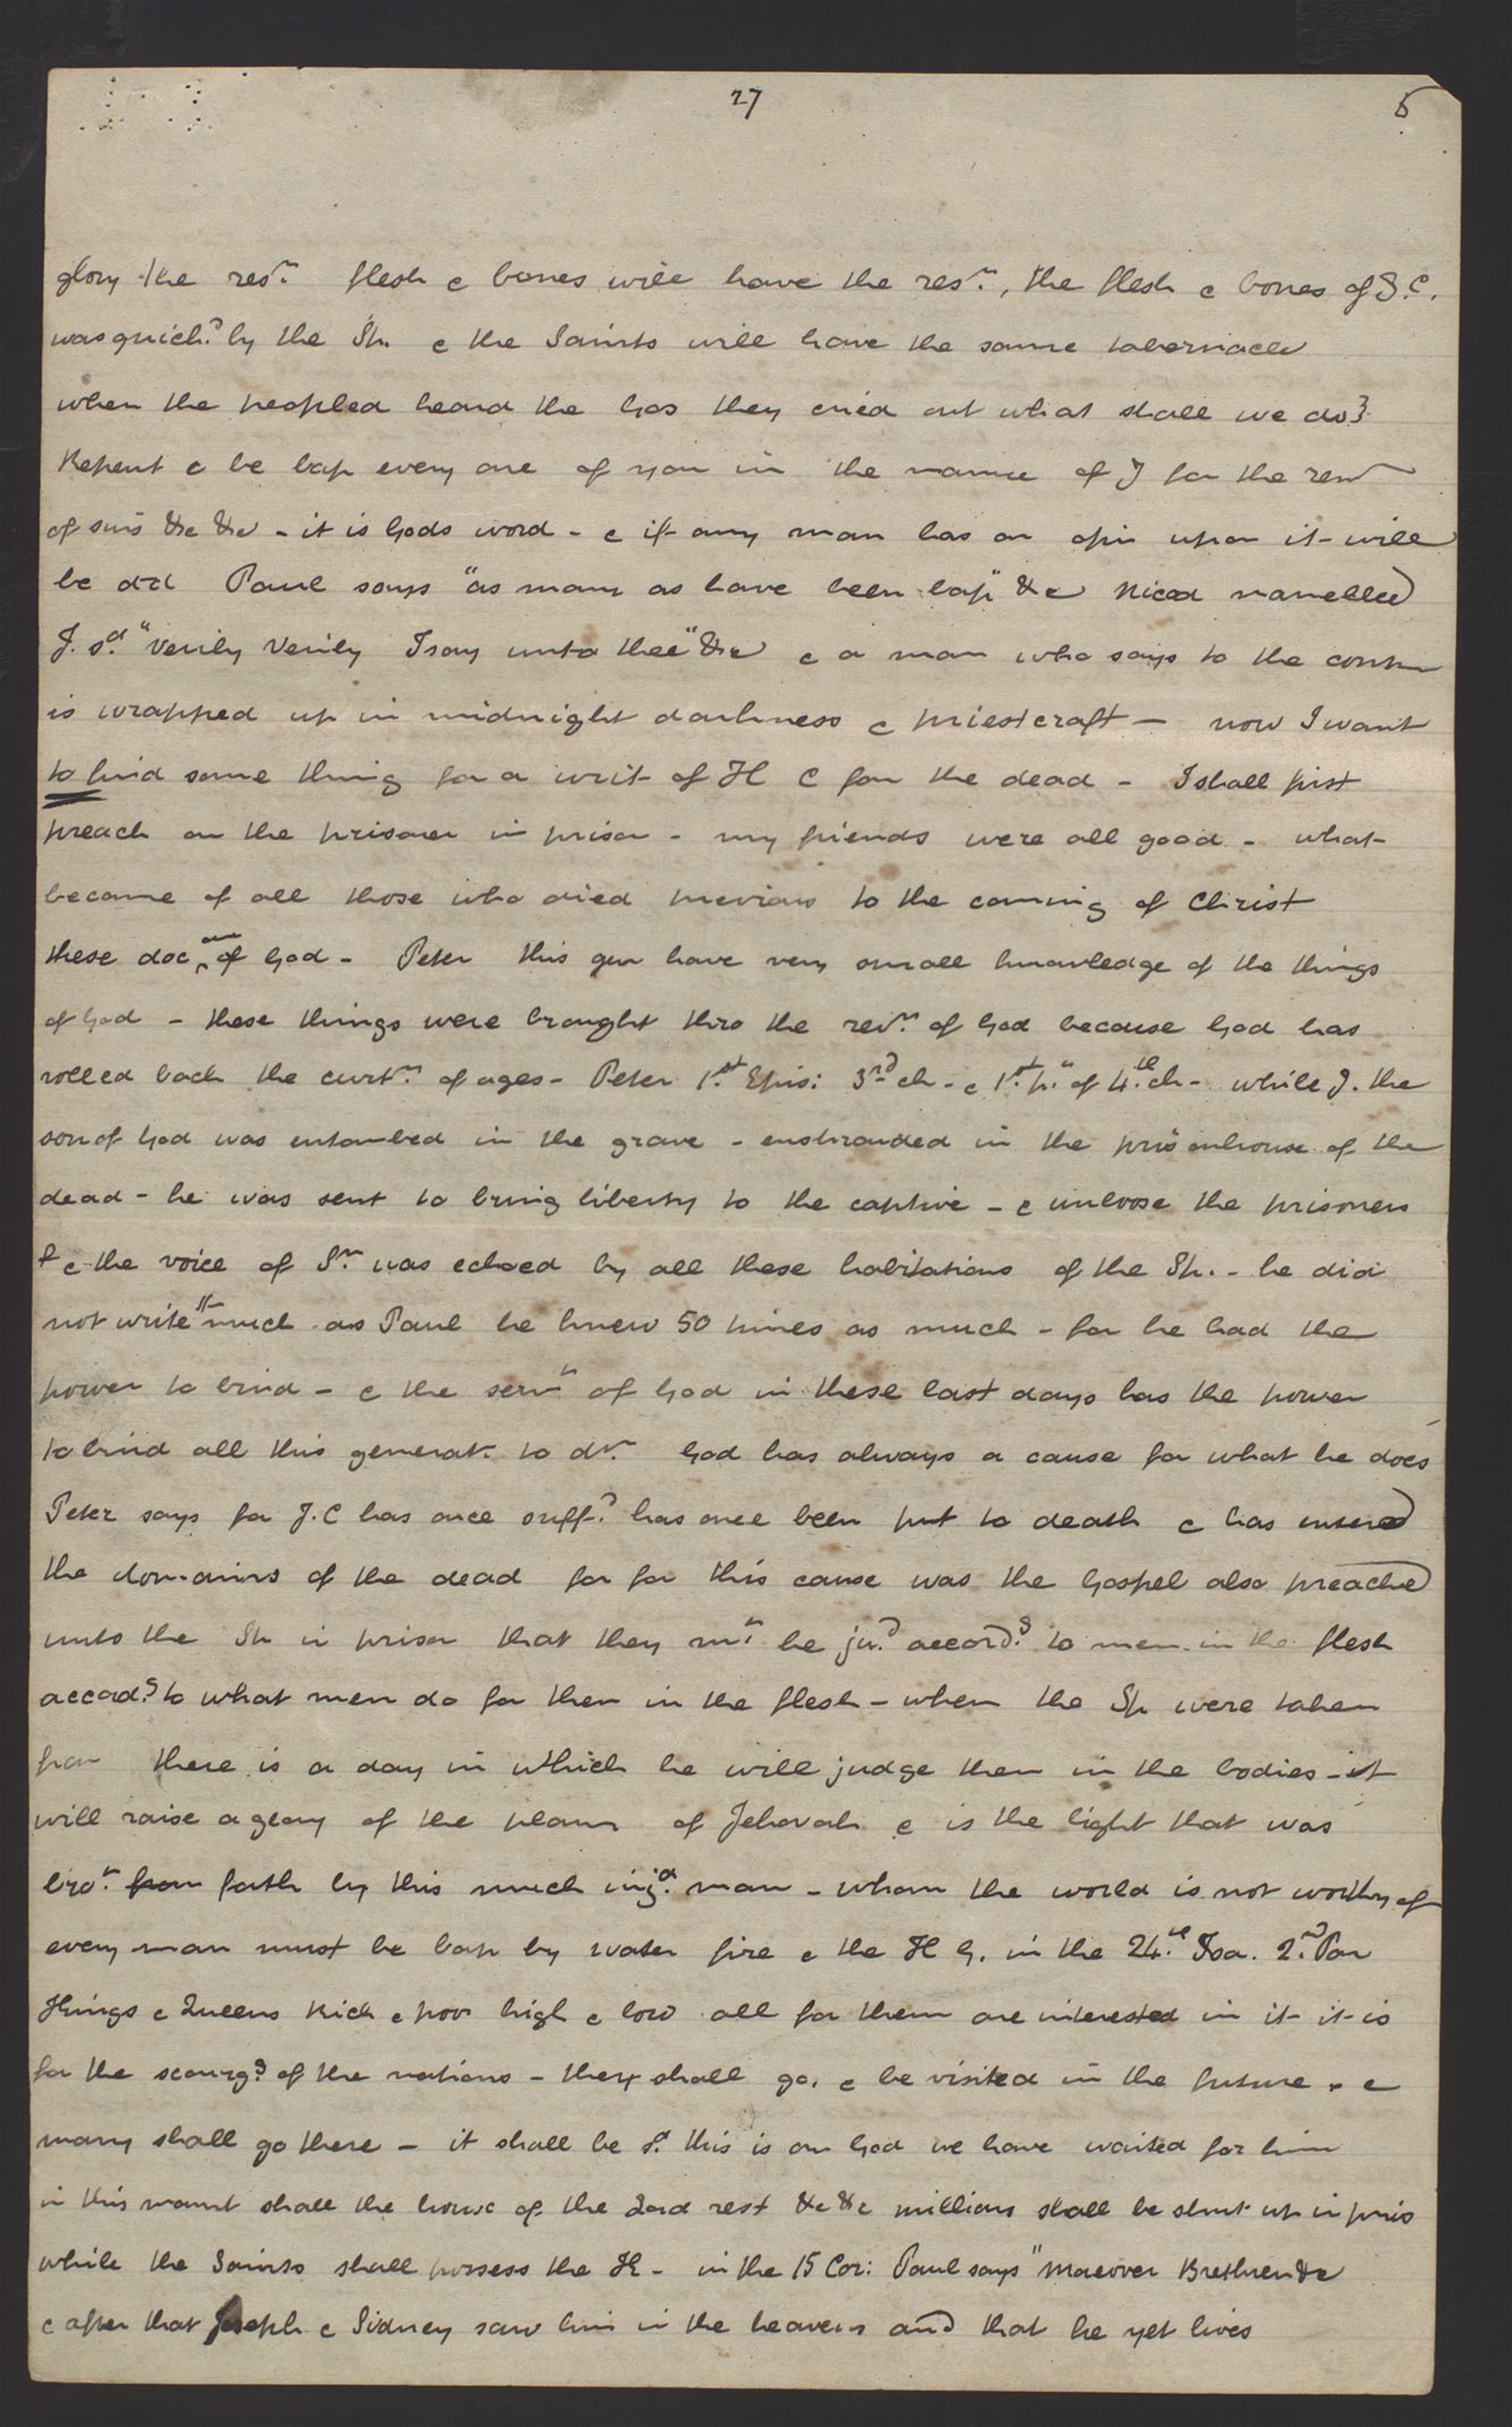 27
5
glory the resn. flesh & bones will have the resn., the flesh & bones of J. C.
was quickd. by the Sp. & the Saints will have the same tabernacle
when the peopled heard the Gos they cried out what shall we do?
Repent & be bap every one of you in the name of J for the rem
of sins &c &c - it is Gods word - & if any man has an opin upon it will
be dd Paul says "as many as have been bap" &c Nicod marvelled
J. sd. "Verily Verily I say unto thee" &c & a man who says to the contr
is wrapped up in midnight darkness & priestcraft — now I want
to find some thing for a writ of H C for the dead - I shall first
preach on the prisoner in prison - my friends were all good - what
became of all those who died previous to the coming of Christ
these doc are of God - Peter this gen have very small knowledge of the things
of God - these things were brought thro the revn. of God because God has
rolled back the curtn. of ages - Peter 1st. Epis: 3rd ch - & 1st. p. of 4th. ch - while J. the
son of God was entombed in the grave - enshrouded in the prisonhouse of the
dead - he was sent to bring liberty to the captive - & unloose the prisoners
& the voice of Sn. was echoed by all these habitations of the Sp. - he did
not write much as Paul he knew 50 times as much - for he had the
power to bind - & the servt of God in these last days has the power
to bind all this generat. to dn. God has always a cause for what he does
Peter says for J. C has once suffd. has once been put to death & has entered
the domains of the dead for for this cause was the Gospel also preached
unto the Sp in prison that they mt be jud. accordg. to men in the flesh
accordg. to what men do for them in the flesh - when the Sp were taken
from there is a day in which he will judge them in the bodies - it
will raise a glory of the plans of Jehovah & is the light that was
brot. from forth by this much injd. man - whom the world is not worthy of
every man must be bap by water fire & the H G. in the 24th. Isa. 2nd. Par
Kings & Queens Rich & poor high & low all for them are interested in it - it is
for the scourgg. of the nations - they shall go. & be visited in the future - &
many shall go there - it shall be sd. this is our God we have waited for him
in this mount shall the house of the Lord rest &c &c millions shall be shut up in pris
while the Saints shall possess the K - in the 15 Cor: Paul says "Moreover Brethren &c
& after that Joseph & Sidney saw him in the heavens and that he yet lives